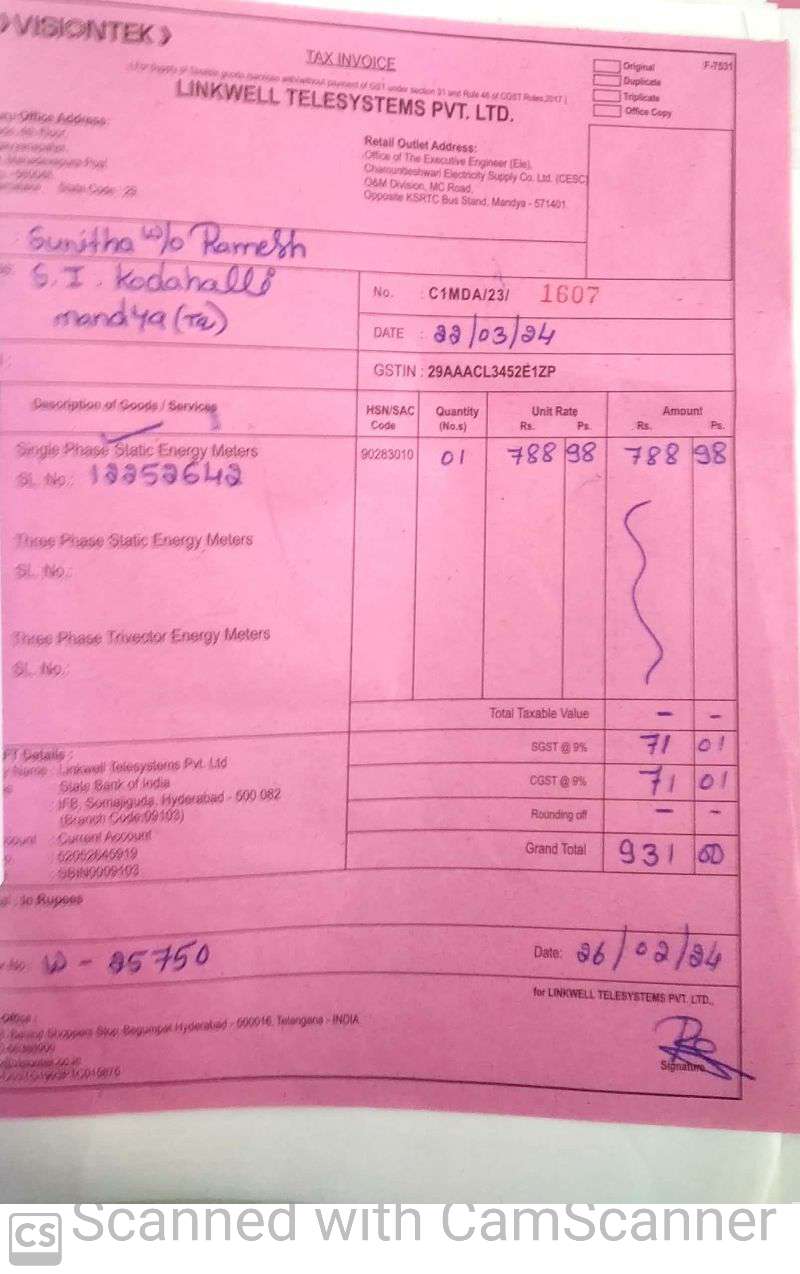 VISIONTEK
TAX INVOICE
F-7531
Original
Duplicate
Triplicate
Office Copy
LINKWELL TELESYSTEMS PVT. LTD.
Office Address:
Retail Outlet Address:
Office of The Executive Engineer (Ele),
Chamundeshwari Electricity Supply Co. Ltd. (CESC)
O&M Division, MC Road,
Opposite KSRTC Bus Stand, Mandya - 571401
State Code : 29
Sunitha w/o Ramesh
S.I. Kodahalli
mandya (Tq)
No. : C1MDA/23/ 1607
DATE : 22/03/24
GSTIN : 29AAACL3452E1ZP
Description of Goods / Services HSN/SAC Code Quantity (No.s) Unit Rate Rs. Ps. Amount Rs. Ps.
Single Phase Static Energy Meters 90283010 01 788 98 788 98
SL. No.: 12252642
Three Phase Static Energy Meters
SL. No.:
Three Phase Trivector Energy Meters
SL. No.:
Total Taxable Value - -
SGST @ 9% 71 01
CGST @ 9% 71 01
Rounding off - -
Grand Total 931 00
Details :
Name : Linkwell Telesystems Pvt. Ltd
State Bank of India
: IFB, Somajiguda, Hyderabad - 500 082
(Branch Code:09103)
: Current Account
: SBIN0009103
In Rupees
No: W - 25750
Date: 26/02/24
for LINKWELL TELESYSTEMS PVT. LTD.,
Begumpet Hyderabad - 500016, Telangana - INDIA
Signature
CS Scanned with CamScanner